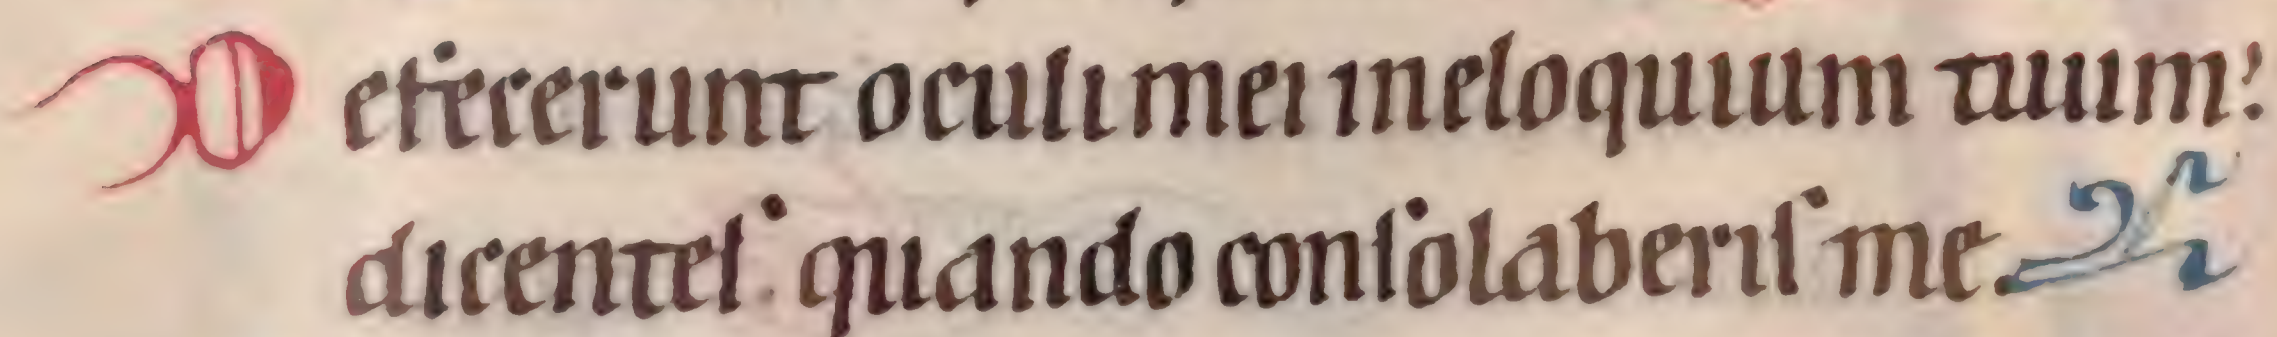 Defecerunt oculi mei in eloquium tuum:
dicentes. quando consolaberis me